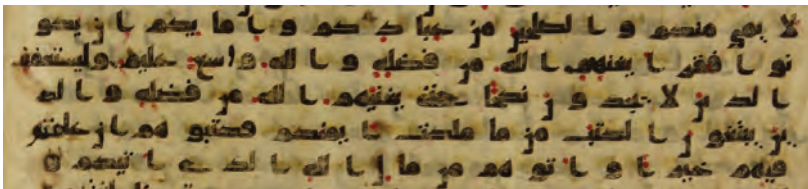 لايمى منكم والصلحين من عبادكم وامايكم ان يكو
نوا فقرا يغنهم الله من فضله والله واسع عليم وليستعفف
الذين لا يجدون نكاحا حتى يغنيهم الله من فضله والذ
ين يبتغون الكتب مما ملكت ايمنكم فكتبوهم ان علمتم
فيهم خيرا واتوهم من مال الله الذى اتيكم و